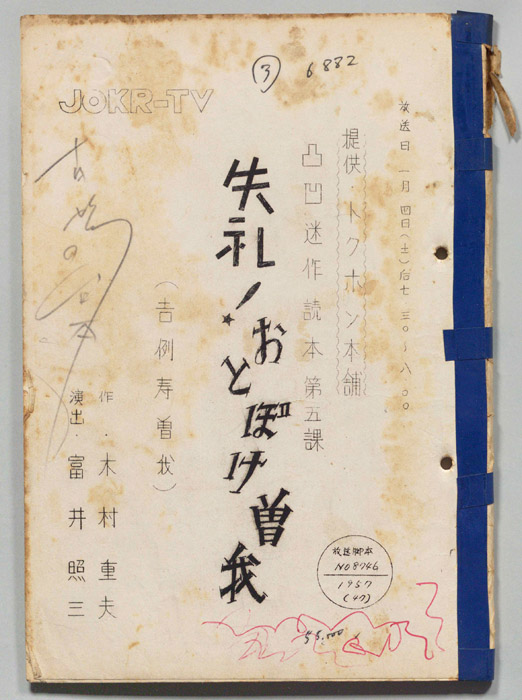 ③ 6882
JOKR-TV
放送日 一月四日(土)后七、三〇〜八、〇〇
提供・トクホン本舗
凸凹迷作読本第五課
失礼!おとぼけ曽我
(吉例寿曽我)
作・木村重夫
演出・富井照三
放送脚本
NO8746
1957
(47)